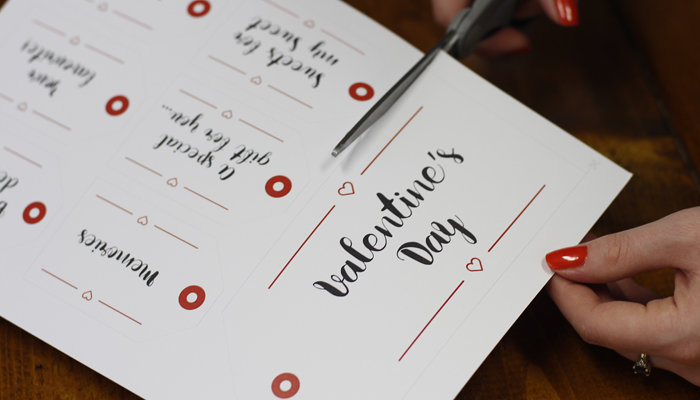 Valentine's
Day
Sweets for
my Sweet
A special
gift for you...
Memories
Your
favourites